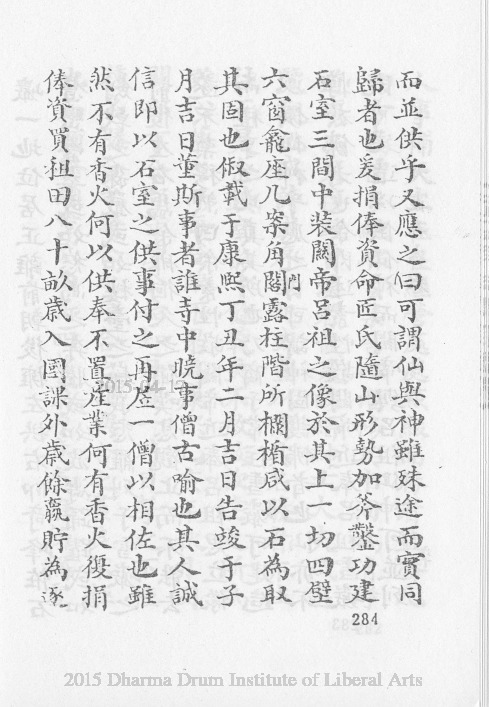 而並供乎又應之曰可謂仙與神雖殊途而實同
歸者也爰捐俸資命匠氏隨山形勢加斧鑿功建
石室三間中裝關帝呂祖之像於其上一切四壁
六窗龕座几案角閣門露柱階所欄楯咸以石為取
其固也俶載于康熙丁丑年二月吉日告竣于子
月吉日董斯事者誰寺中曉事僧古喻也其人誠
信即以石室之供事付之再蓙一僧以相佐也雖
然不有香火何以供奉不置產業何有香火復捐
俸資買租田八十畝歲入國課外歲餘羸貯為逐
284
2015-04-1
2015 Dharma Drum Institute of Liberal Arts